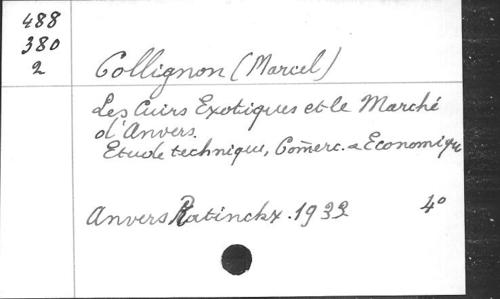 488
380
2
Collignon (Marcel)
Les Cuirs Exotiques et le Marché
d'Anvers.
Etude technique, Com̄erc. & Economique
Anvers Ratinckx. 1932 4°